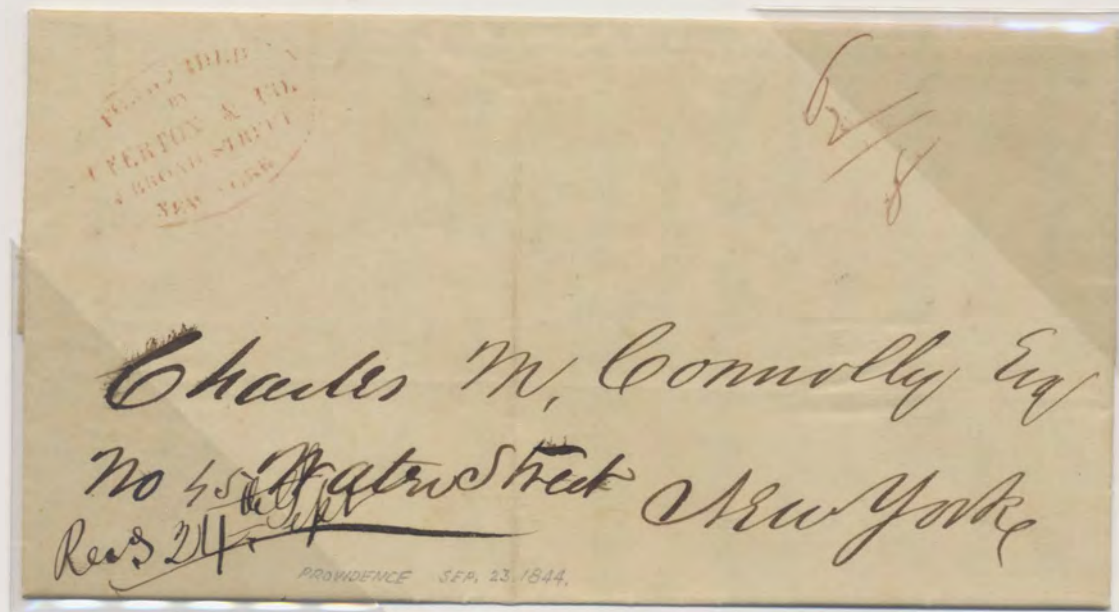 BY
& Co.
BROAD STREET
NEW YORK
6 2/8
Charles M, Connolly Esq
No 45 Water Street New York
Recd 24th Sept
PROVIDENCE SEP. 23. 1844.